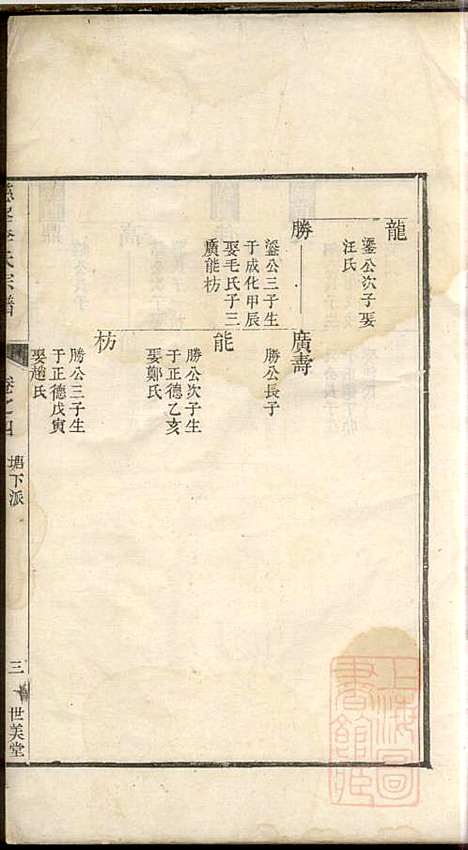 龍
鎏公次子娶
汪氏
勝
鎏公三子生
于成化甲辰
娶毛氏子三
廣能枋
廣壽
勝公長子
能
勝公次子生
于正德乙亥
娶鄭氏
枋
勝公三子生
于正德戊寅
娶趙氏
李氏宗譜
卷之四
塘下派
三
世美堂
上海圖書館藏